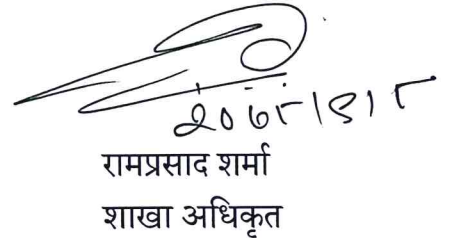 २०७८।९।८
रामप्रसाद शर्मा
शाखा अधिकृत